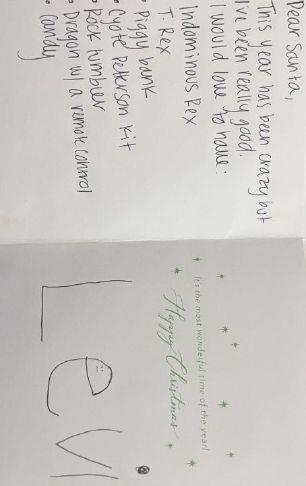 Dear Santa,
This year has been crazy but
I've been really good.
I would love to have:
Indominous Rex
T. Rex
• Piggy bank
• Cyote Peterson Kit
• Rock tumbler
• Dragon w/ a remote control
• Candy
It's the most wonderful time of the year!
Happy Christmas
Levi